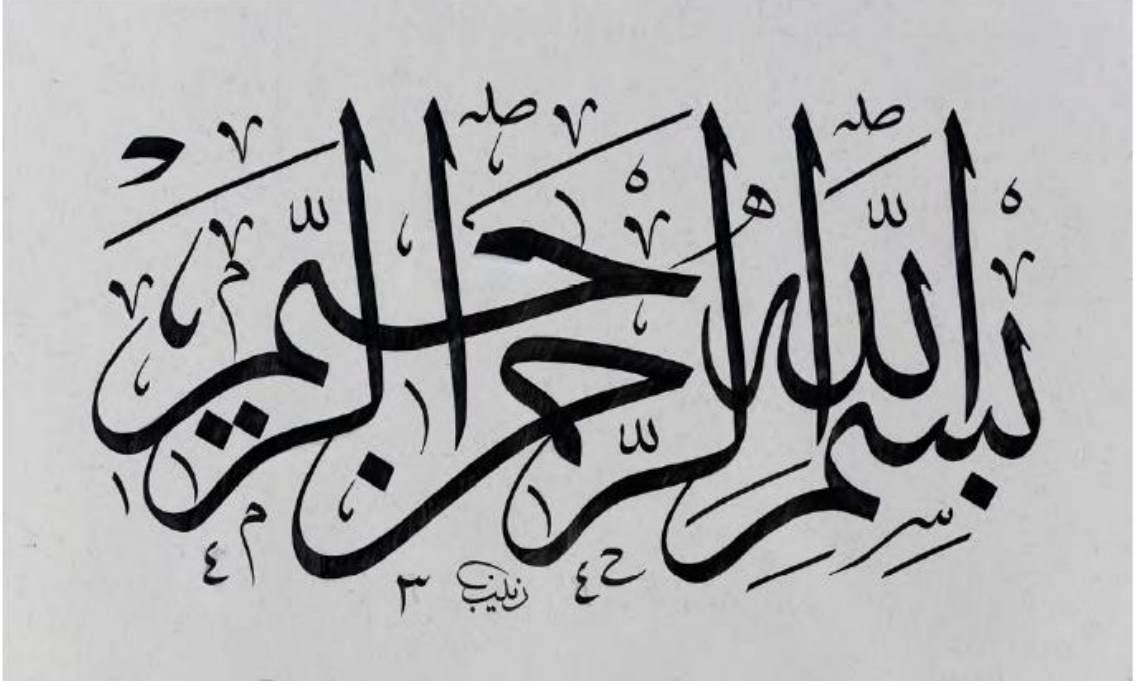 بسم الله الرحمن الرحيم
١ ٤ ٣ زينب ٤